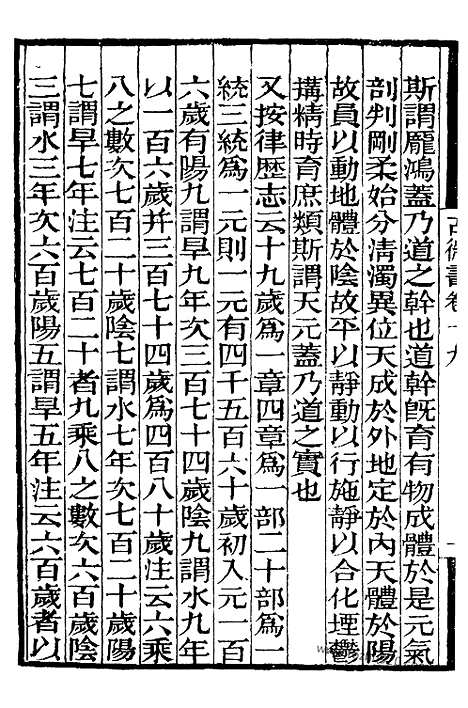 斯謂龎鴻蓋乃道之幹也道幹旣育有物成體於是元氣
剖判剛柔始分清濁異位天成於外地定於內天體於陽
故員以動地體於陰故平以靜動以行施靜以合化堙鬱
搆精時育庶類斯謂天元蓋乃道之實也
又按律歷志云十九歲爲一章四章爲一部二十部爲一
統三統爲一元則一元有四千五百六十歲初入元一百
六歲有陽九謂旱九年次三百七十四歲陰九謂水九年
以一百六歲并三百七十四歲爲四百八十歲注云六乘
八之數次七百二十歲陰七謂水七年次七百二十歲陽
七謂旱七年注云七百二十者九乘八之數次六百歲陰
三謂水三年次六百歲陽五謂旱五年注云六百歲者以
古微書卷十九